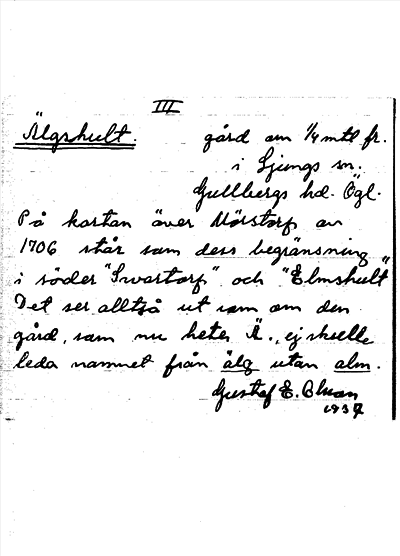 III
Älgshult. gård om 1/4 mtl fr.
i Ljungs sn.
Gullbergs hd. Ögl.
På kartan över Mörstorp av
1706 står som dess begränsning
i söder "Swartorp" och "Elmshult"
Det ser alltså ut som om den
gård, som nu heter Ä., ej skulle
leda namnet från älg utan alm.
Gustaf E. Olson